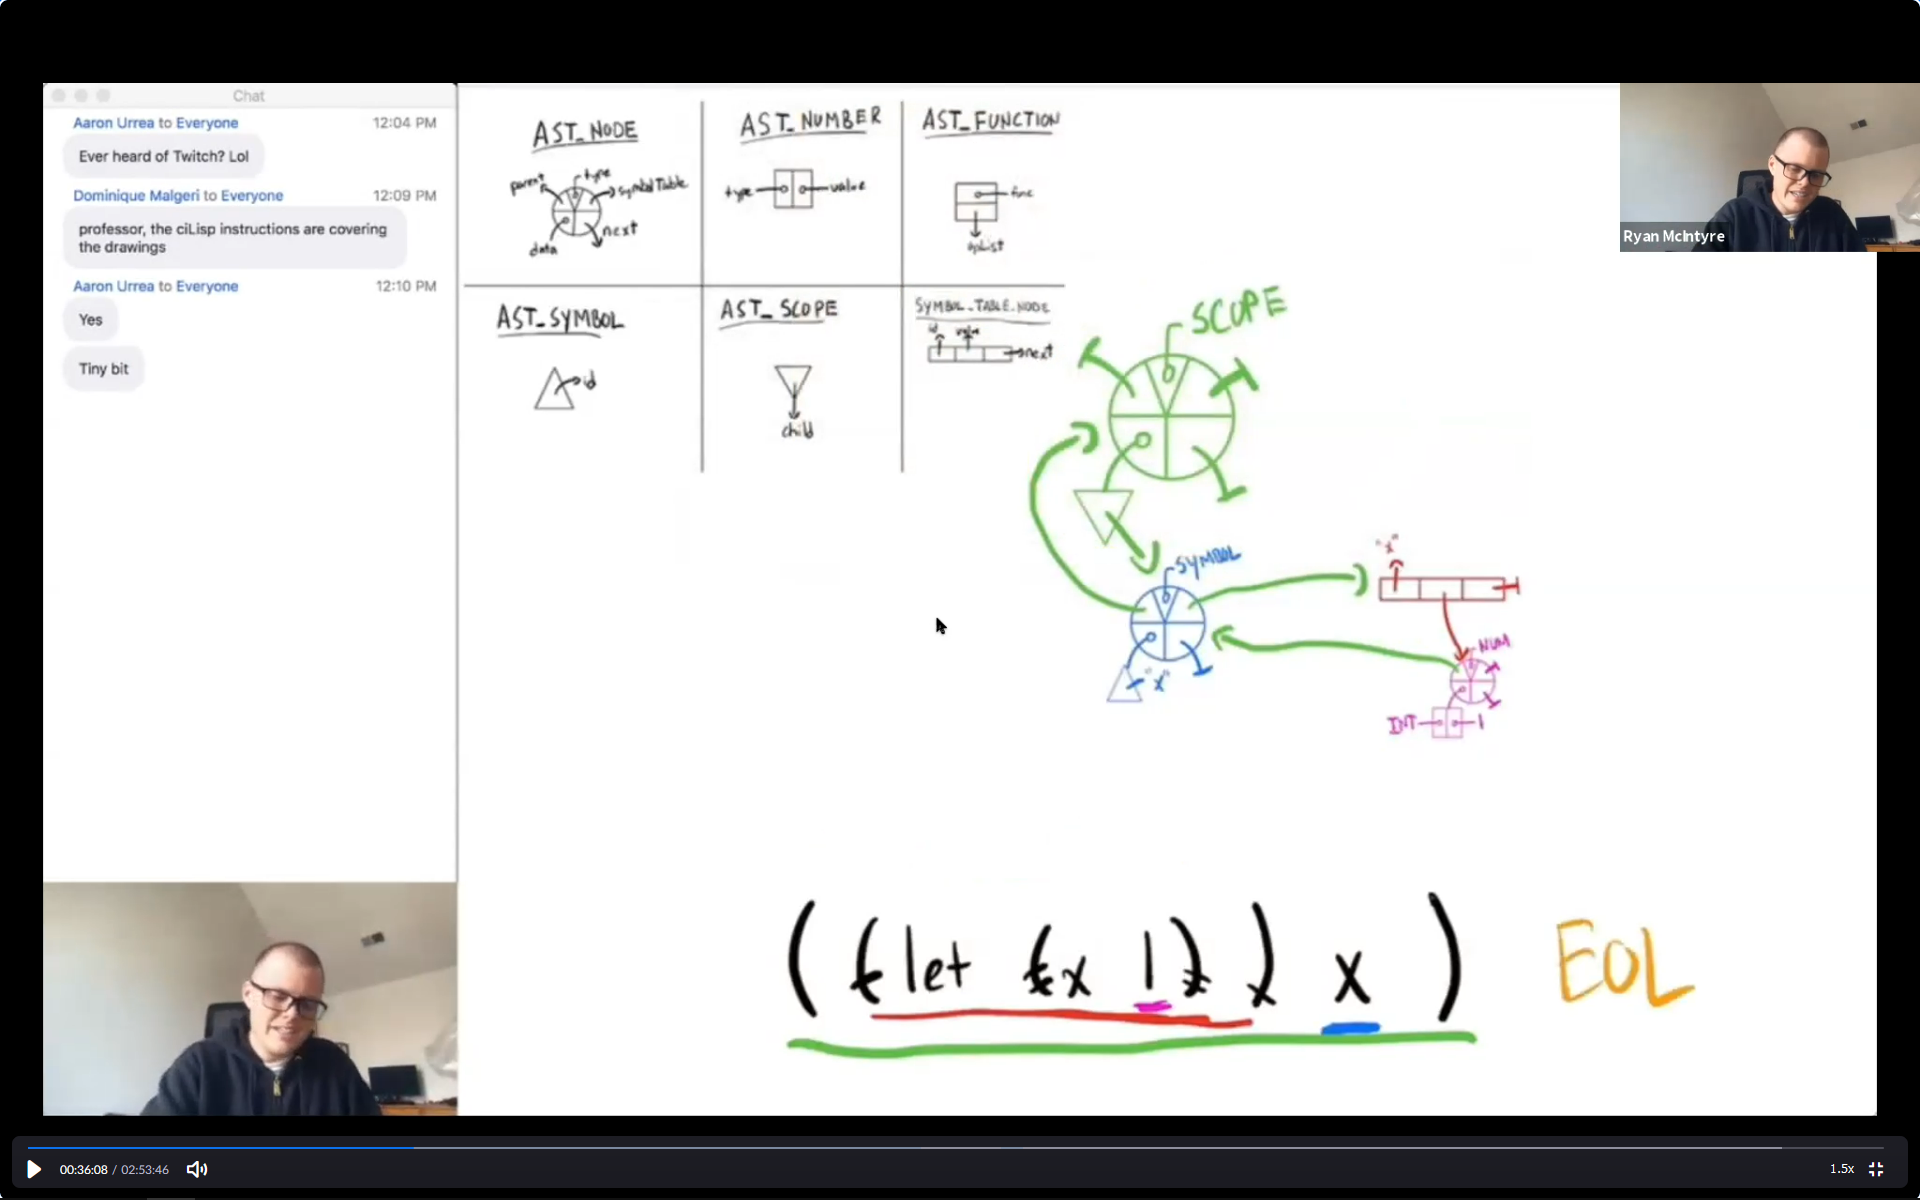 Chat
Aaron Urrea to Everyone 12:04 PM
Ever heard of Twitch? Lol
Dominique Malgeri to Everyone 12:09 PM
professor, the ciLisp instructions are covering
the drawings
Aaron Urrea to Everyone 12:10 PM
Yes
Tiny bit
AST_NODE
parent
type
symbolTable
next
data
AST_NUMBER
type
value
AST_FUNCTION
func
opList
AST_SYMBOL
id
AST_SCOPE
child
SYMBOL_TABLE_NODE
id
value
next
SCOPE
SYMBOL
"x"
"x"
NUM
INT
1
((let (x 1)) x) EOL
Ryan McIntyre
00:36:08 / 02:53:46
1.5x